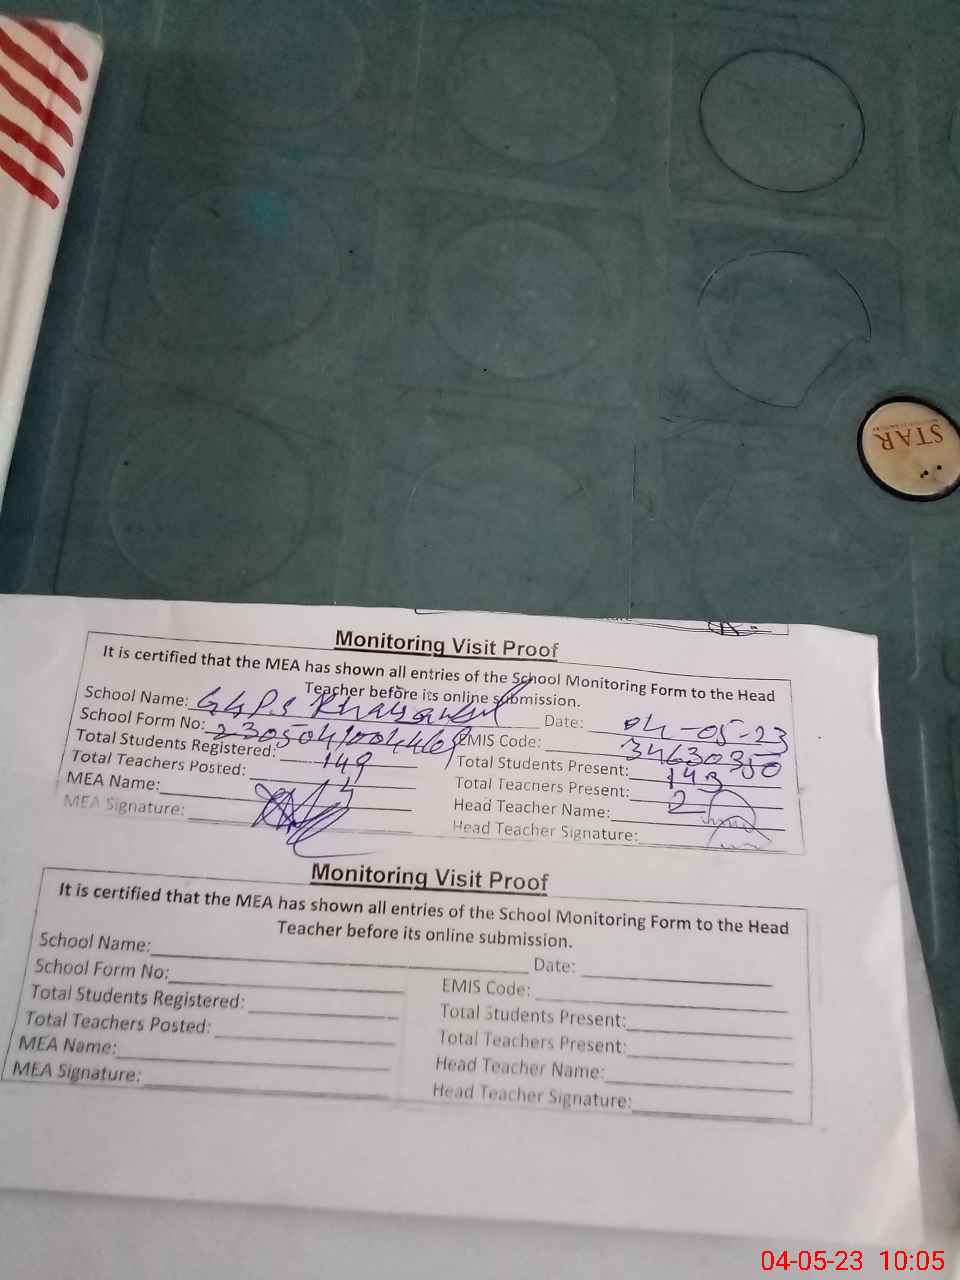 STAR
Monitoring Visit Proof
It is certified that the MEA has shown all entries of the School Monitoring Form to the Head
Teacher before its online submission.
School Name: Date: 04-05-23
School Form No: EMIS Code: 34630350
Total Students Registered: 149 Total Students Present: 143
Total Teachers Posted: 2 Total Teachers Present: 2
MEA Name: Head Teacher Name:
MEA Signature: Head Teacher Signature:
Monitoring Visit Proof
It is certified that the MEA has shown all entries of the School Monitoring Form to the Head
Teacher before its online submission.
School Name: Date:
School Form No: EMIS Code:
Total Students Registered: Total Students Present:
Total Teachers Posted: Total Teachers Present:
MEA Name: Head Teacher Name:
MEA Signature: Head Teacher Signature:
04-05-23 10:05